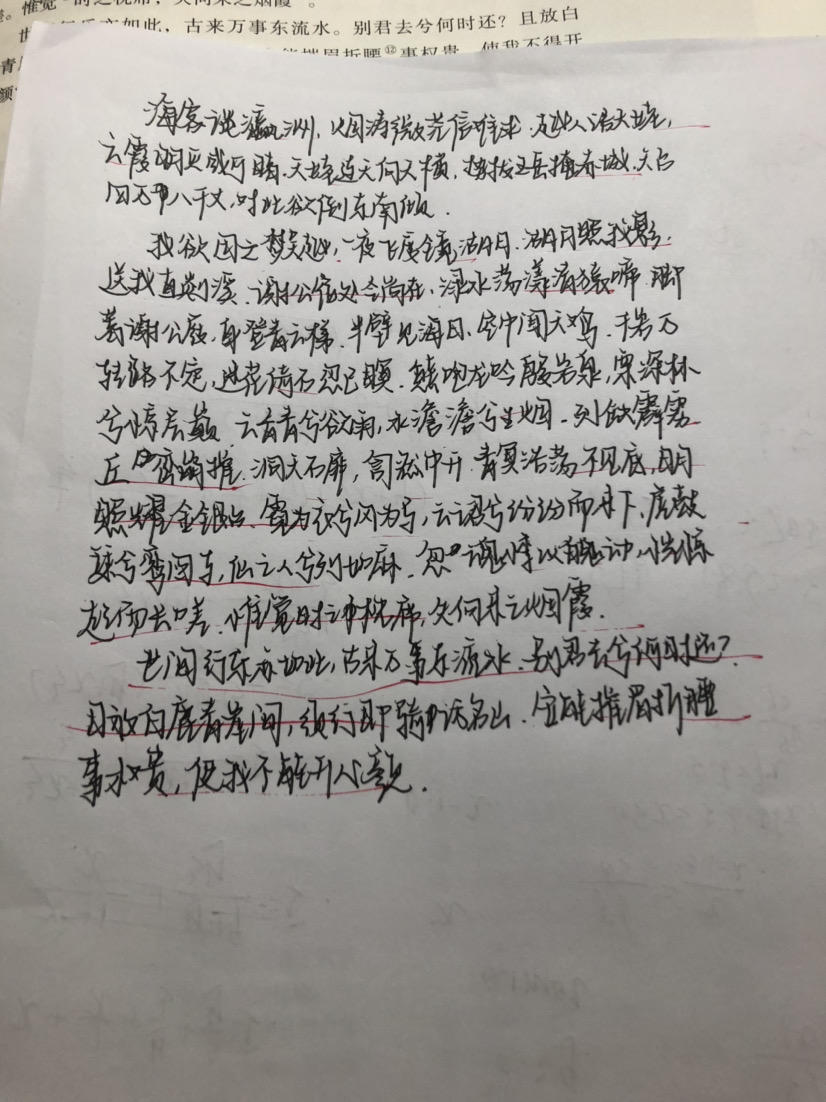 世间行乐亦如此，古来万事东流水。别君去兮何时还？且放白
事权贵，使我不得开
海客谈瀛洲，烟涛微茫信难求，越人语天姥，
云霞明灭或可睹。天姥连天向天横，势拔五岳掩赤城。天台
四万八千丈，对此欲倒东南倾。
我欲因之梦吴越，一夜飞度镜湖月。湖月照我影，
送我至剡溪。谢公宿处今尚在，渌水荡漾清猿啼。脚
著谢公屐，身登青云梯。半壁见海日，空中闻天鸡。千岩万
转路不定，迷花倚石忽已暝。熊咆龙吟殷岩泉，栗深林
兮惊层巅。云青青兮欲雨，水澹澹兮生烟。列缺霹雳
丘峦崩摧。洞天石扉，訇然中开。青冥浩荡不见底，日月
照耀金银台。霓为衣兮风为马，云之君兮纷纷而来下。虎鼓
瑟兮鸾回车，仙之人兮列如麻。忽魂悸以魄动，恍惊
起而长嗟。惟觉时之枕席，失向来之烟霞。
世间行乐亦如此，古来万事东流水。别君去兮何时还？
且放白鹿青崖间，须行即骑访名山。安能摧眉折腰
事权贵，使我不能开心颜。